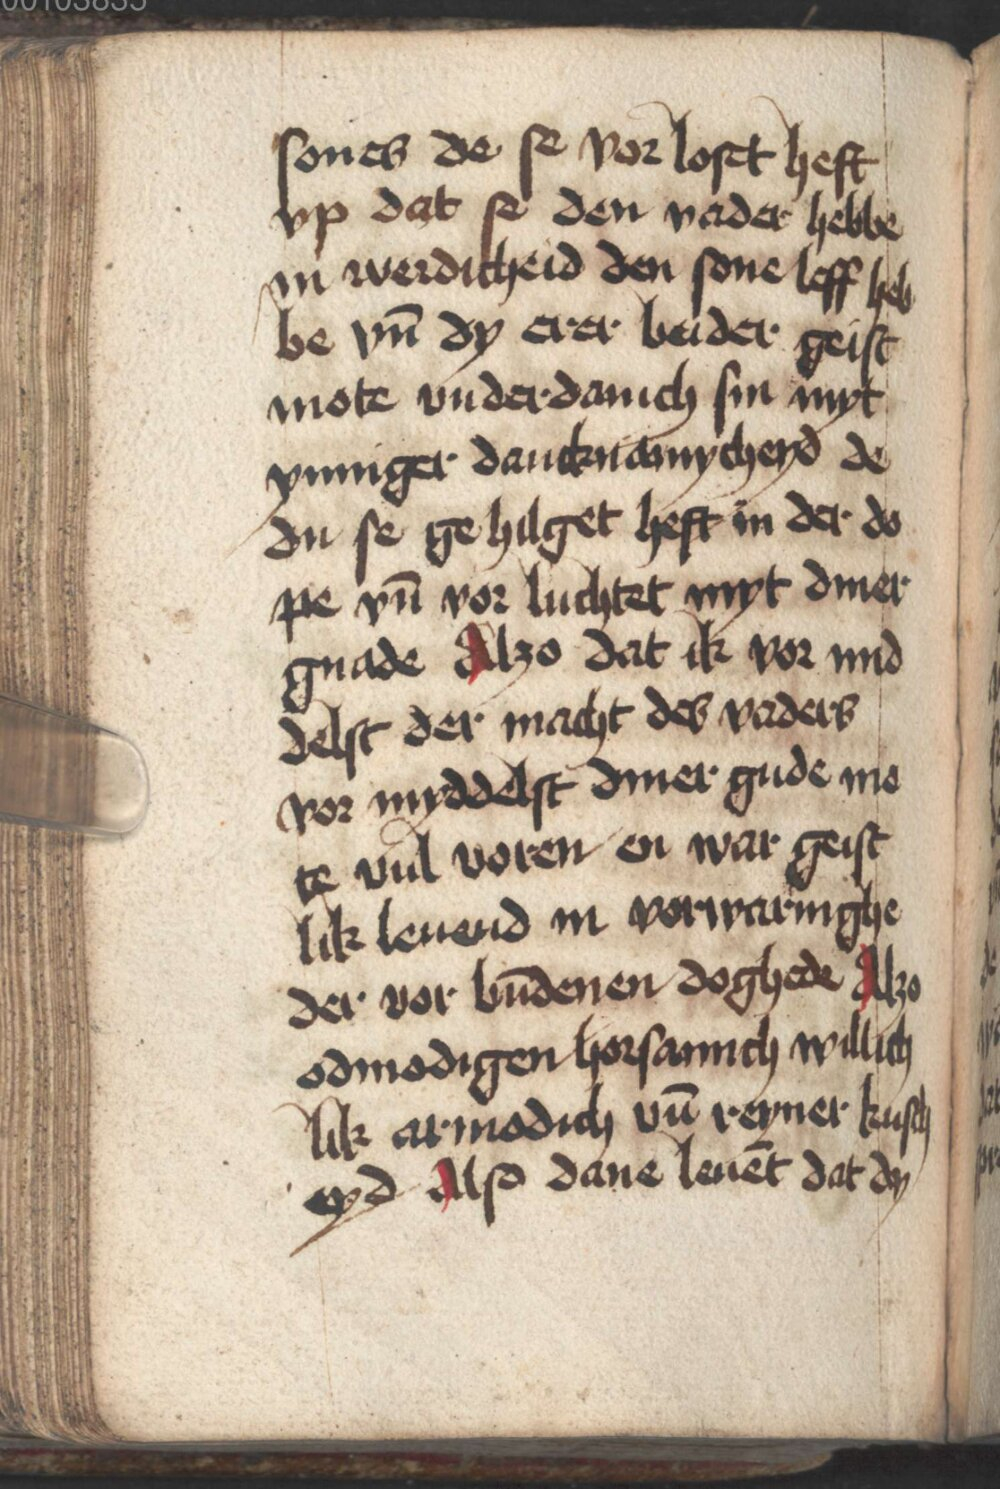 00103835
sones de se vor loset heft
vp dat se den vader hebbe
in werdicheid den sone leff heb
be vn̄ dy erer beider geist
mote vnderdanich sin myt
ynniger dancknamycheyd de
du se ge hilget heft in der do
pe vn̄ vor luchtet myt diner
gnade Alzo dat ik vor mid
delst der macht des vaders
vor myddelst diner gude mo
te vul voren en war geist
lik leuend in vorwaringhe
der vor būdenen doghede Alzo
odmodigen horsamich willich
lik armodich vn̄ reyner kusch
eyd Also dane leuēt dat dy